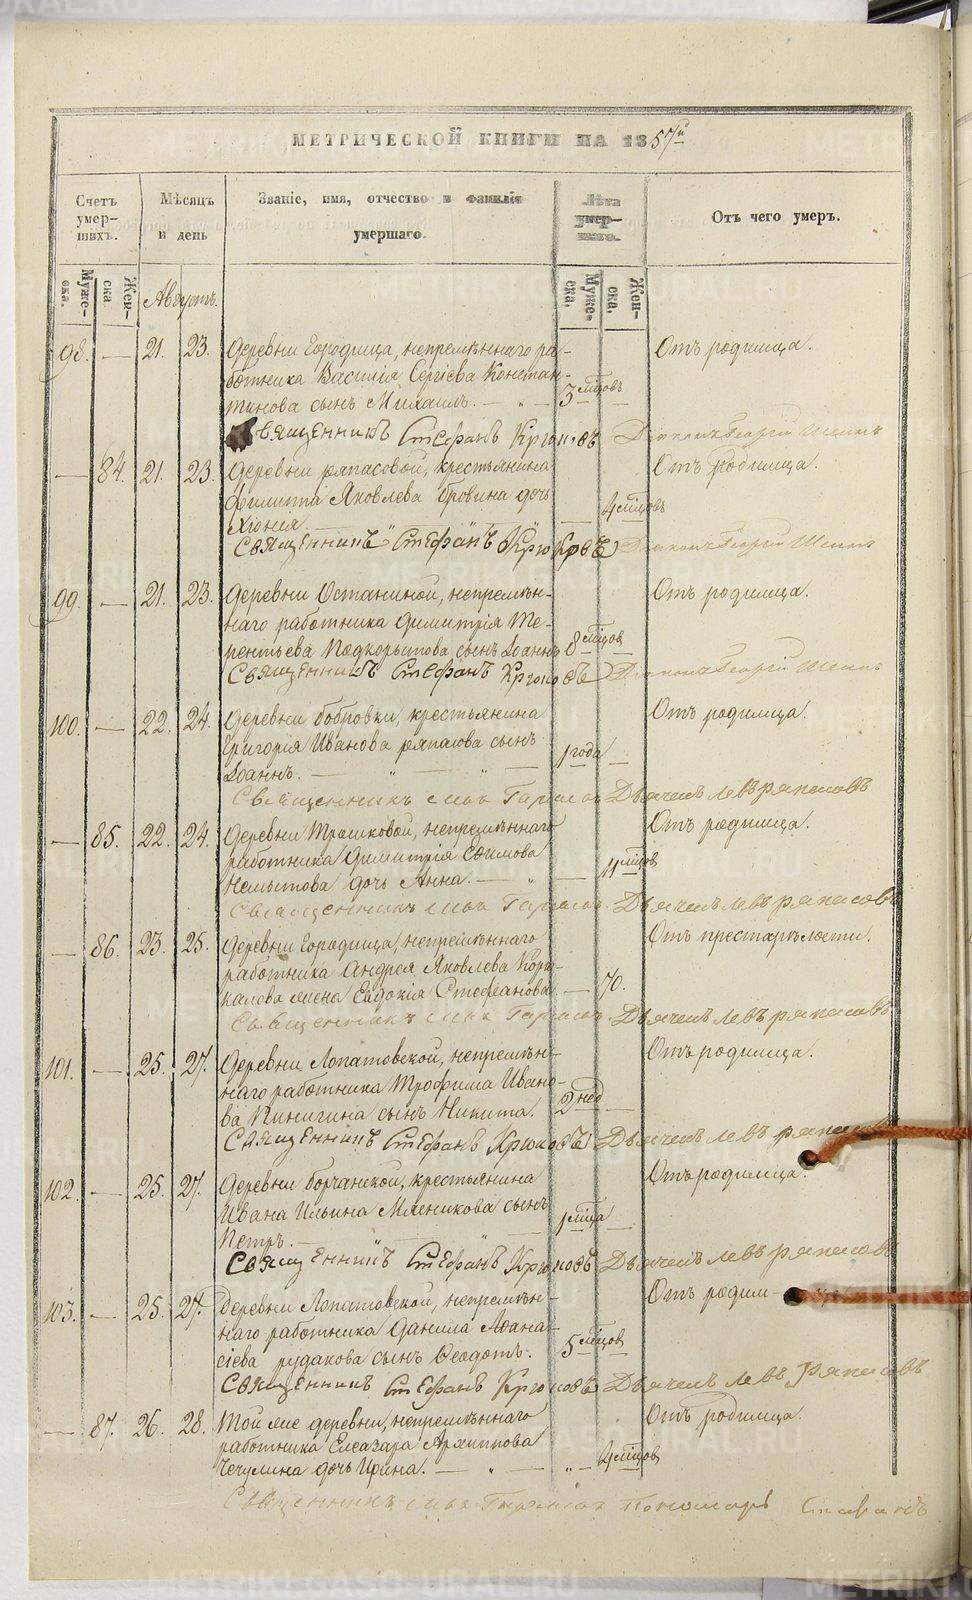 МЕТРИЧЕСКОЙ КНИГИ НА 1857й
Счетъ умер-шихъ.
Мѣсяцъ и день
Званіе, имя, отчество и фамилія умершаго.
Лѣта умер-шаго.
Отъ чего умеръ.
Муже-ска.
Жен-ска.
Августъ.
Муже-ска.
Жен-ска.
98. — 21. 23. Деревни Городища, непремѣннаго ра- Отъ родимца.
ботника Василія Сергіева Констан-
тинова сынъ Михаилъ. — „ — 3 мѣсцовъ —
Священникъ Стефанъ Крюковъ Діаконъ Георгій
— 84. 21. 23. Деревни Ряпасовой, крестьянина Отъ родимца.
Филиппа Яковлева Бровина дочь
Хіонія. — 4 мѣсцовъ
Священникъ Стефанъ Крюковъ Діаконъ Георгій
99. — 21. 23. Деревни Останиной, непремѣн- Отъ родимца.
наго работника Димитрія Те-
рентьева Подкорытова сынъ Іоаннъ 8 мѣсцов —
Священникъ Стефанъ Крюковъ Діаконъ Георгій
100. — 22. 24. Деревни Бобровки, крестьянина Отъ родимца.
Григорія Иванова Ряпасова сынъ
Іоаннъ. — „ — „ — 1 года —
Священникъ Дьячекъ Левъ Ряпасовъ
— 85. 22. 24. Деревни Трошковой, непремѣннаго Отъ родимца.
работника Димитрія Ефимова
Немытова дочь Анна. — „ — 11 мѣсцов
Священникъ Дьячекъ Левъ Ряпасовъ
— 86. 23. 25. Деревни Городища, непремѣннаго Отъ престарѣлости.
работника Андрея Яковлева
жена Евдокія Стефанова. — 70.
Священникъ Дьячекъ Левъ Ряпасовъ
101. — 25. 27. Деревни Лопатовской, непремѣн- Отъ родимца.
наго работника Трофима Ивано-
ва Кинигина сынъ Никита. 2 нед —
Священникъ Стефанъ Крюковъ Дьячекъ Левъ Ряпасовъ
102. — 25. 27. Деревни Борчанской, крестьянина Отъ родимца.
Ивана Ильина Мясникова сынъ
Петръ. — 1 мѣсца —
Священникъ Стефанъ Крюковъ Дьячекъ Левъ Ряпасовъ
103. — 25. 27. Деревни Лопатовской, непремѣн- Отъ родим-
наго работника Данила Афана-
сіева Рудакова сынъ Феодотъ. 5 мѣсцов
Священникъ Стефанъ Крюковъ Дьячекъ Левъ Ряпасовъ
— 87. 26. 28. Той же деревни, непремѣннаго Отъ родимца.
работника Елеазара Архиппова
Чечулина дочь Ирина. — „ — „ — 4 мѣсцов
Священникъ Пономарь